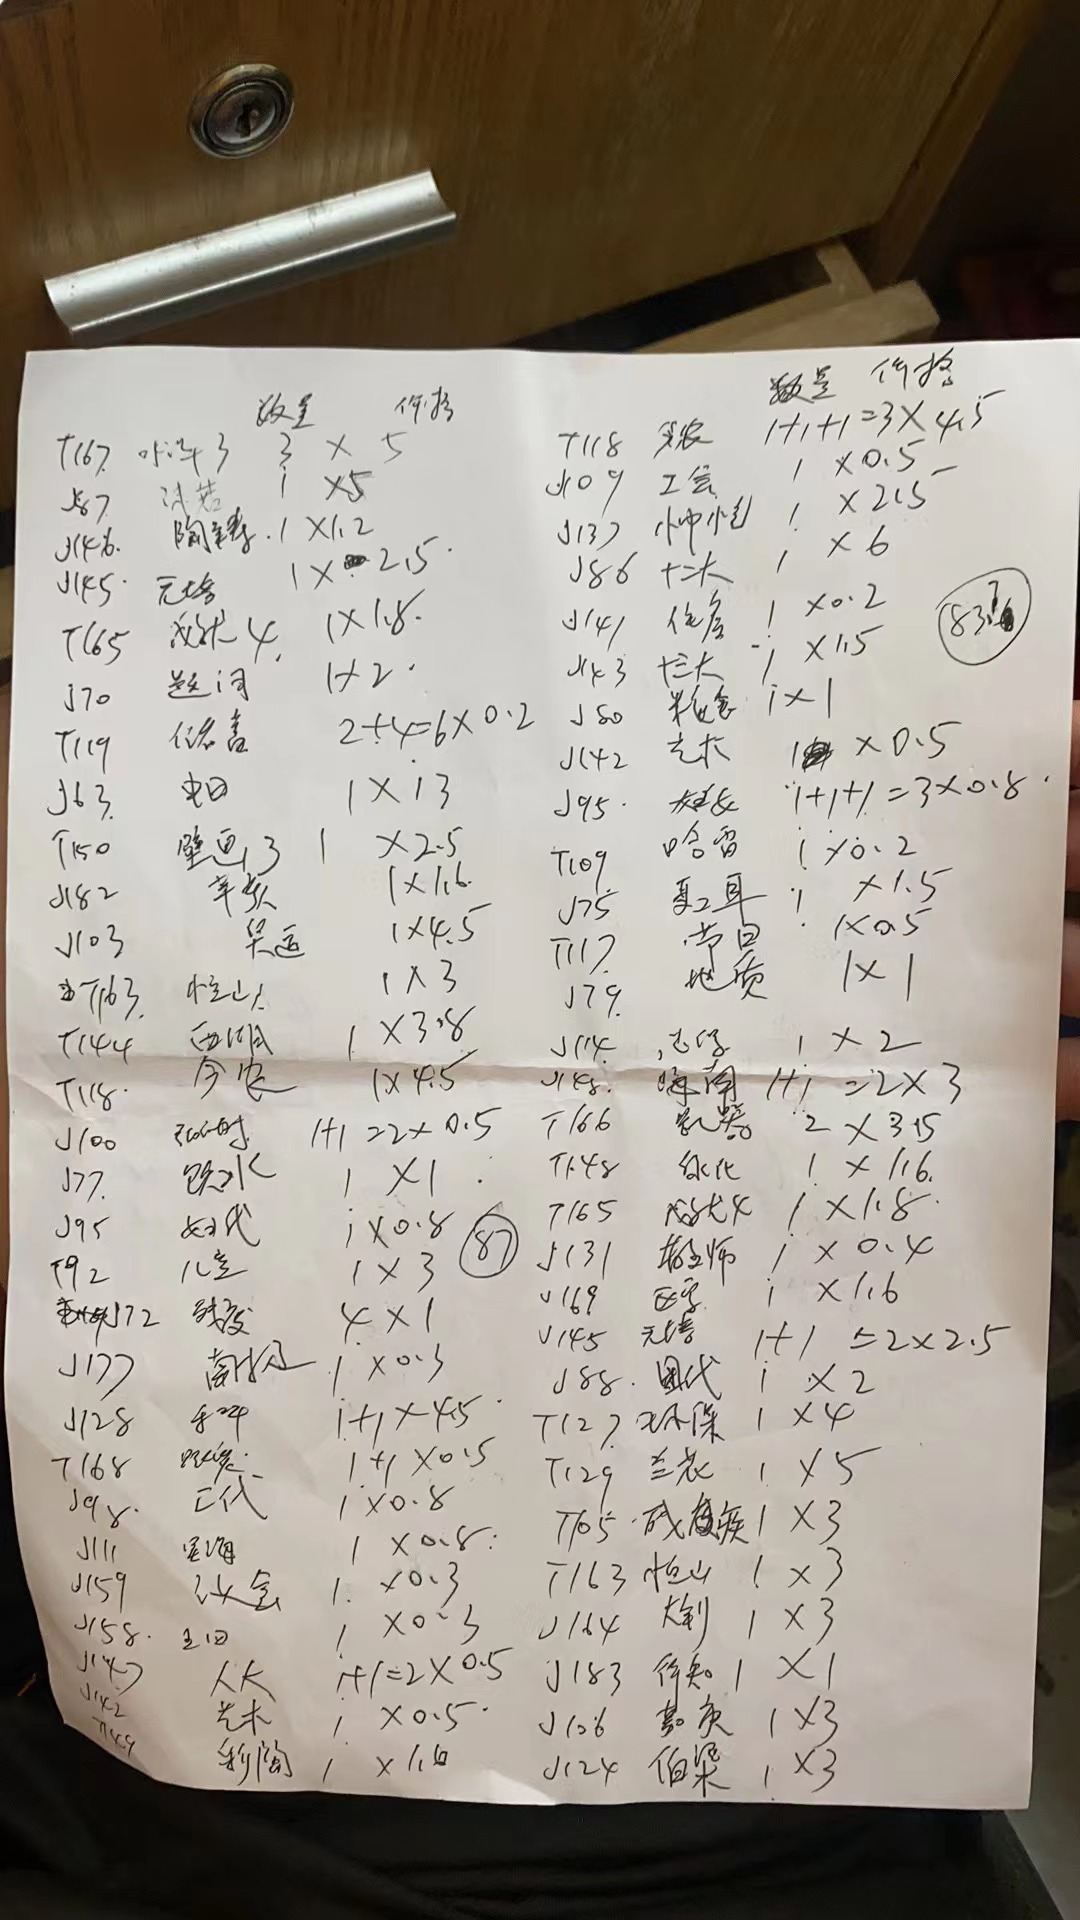 数量 价格
T167 水浒3 3 × 5
J87 沫若 1 ×5
J146. 陶铸. 1 ×1.2
J145. 元培 1× 2.5.
T165 水浒4. 1×1.8.
J70 题词 1×2.
T119 2+4=6×0.2
J63. 中日 1×13
T150 壁画3 1 ×2.5
J182 辛亥 1×1.6
J103 奖运 1×4.5
T163. 恒山 1×3
T144 西湖 1 ×3.8
T118. 今农 1×4.5
J100 1+1=2×0.5
J77. 1 ×1.
J95 妇代 1×0.8
87
T92 儿童 1×3
J72 4×1
J177 1×0.3
J128 1+1×4.5.
T168 赈灾 1+1×0.5
J98. 工代 1×0.8
J111 星海 1 ×0.8.
J159 议会 1. ×0.3
J158. 1 ×0.3
J147 人大 1+1=2×0.5
J142 艺术 1 ×0.5.
T149 彩陶 1 ×1.6
数量 价格
T118 今农 1+1+1=3×4.5
J109 工会 1 ×0.5
J137 仲恺 1 ×2.5
J86 十二大 1 ×6
J141 住房 1 ×0.2
836
J143 十三大 1 ×1.5
J80 米粮食 1×1
J142 艺术 1 ×0.5
J95. 1+1+1=3×0.8.
T109 哈雷 1×0.2
J75 夏工耳 1 ×1.5
T117. 节日 1×0.5
J79. 地质 1×1
J114. 1 ×2
J148. 海南 1+1=2×3
T166 瓷器 2 ×3.5
T148 绿化 1 ×1.6.
T165 水浒4 1×1.8.
J131 教师 1 ×0.4
J169 1 ×1.6
J145 元培 1+1 =2×2.5
J88. 团代 1 ×2
T127 环保 1 ×4
T129 兰花 1 ×5
T105. 残废疾 1 ×3
T163 恒山 1 ×3
J164 大钊 1 ×3
J183 行知 1 ×1
J106 嘉庚 1×3
J124 伯渠 1 ×3